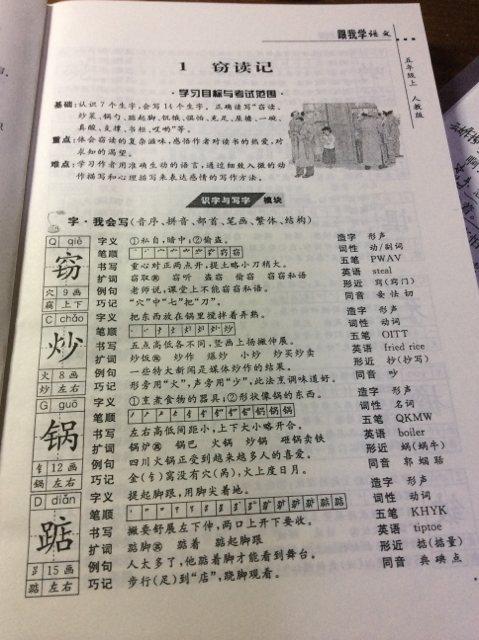 跟我学语文
五年级上 人教版
1 窃读记
·学习目标与考试范围·
基础:认识7个生字,会写14个生字。正确读写"窃读、
炒菜、锅勺、踮起脚、饥饿、惧怕、充足、屋檐、一碗、
真酸、支撑、书柜、哎哟"等。
重点:体会窃读的复杂滋味,感悟作者对读书的热爱,对
求知的渴望。
难点:学习作者用准确生动的语言,通过细致入微的动
作描写和心理描写来表达感情的写作方法。
识字与写字 模块
字·我会写(音序、拼音、部首、笔画、繁体、结构)
Q qiè
窃
穴 9画
竊 上下
字义 ①私自,暗中;②偷盗。
笔顺
书写 重心对正两点开,提土略小刀稍大。
扩词 窃取 窃听 盗窃 偷窃 窃窃私语
例句 老师说,课堂上不能窃窃私语。
巧记 "穴"中"七"把"刀"。
造字 形声
词性 动/副词
五笔 PWAV
英语 steal
形近 窍(窍门)
同音 妾 怯 切
C chǎo
炒
火 8画
炒 左右
字义 把东西放在锅里搅拌着弄熟。
笔顺
书写 五点高低各不同,竖画上扬撇伸展。
扩词 炒饭 炒作 爆炒 小炒 炒买炒卖
例句 一些特大新闻是媒体炒作的结果。
巧记 形旁用"火",声旁用"少",此法烹调味道好。
造字 形声
词性 动词
五笔 OITT
英语 fried rice
形近 抄(抄写)
同音 吵
G guō
锅
钅 12画
鍋 左右
字义 ①烹煮食物的器具;②形状像锅的东西。
笔顺
书写 左右高低间距小,上下大小略开合。
扩词 锅炉 锅巴 火锅 炒锅 砸锅卖铁
例句 四川火锅正受到越来越多人的喜爱。
巧记 金(钅)窝没有穴(呙),火上度日月。
造字 形声
词性 名词
五笔 QKMW
英语 boiler
形近 蜗(蜗牛)
同音 郭 蝈 聒
D diǎn
踮
15画
踮 左右
字义 提起脚跟,用脚尖着地。
笔顺
书写 撇要舒展左下伸,两口上开下要收。
扩词 踮脚 踮着 踮起脚跟
例句 人太多了,他踮着脚才能看到舞台。
巧记 步行(足)到"店",跷脚观看。
造字 形声
词性 动词
五笔 KHYK
英语 tiptoe
形近 掂(掂量)
同音 典 碘 点